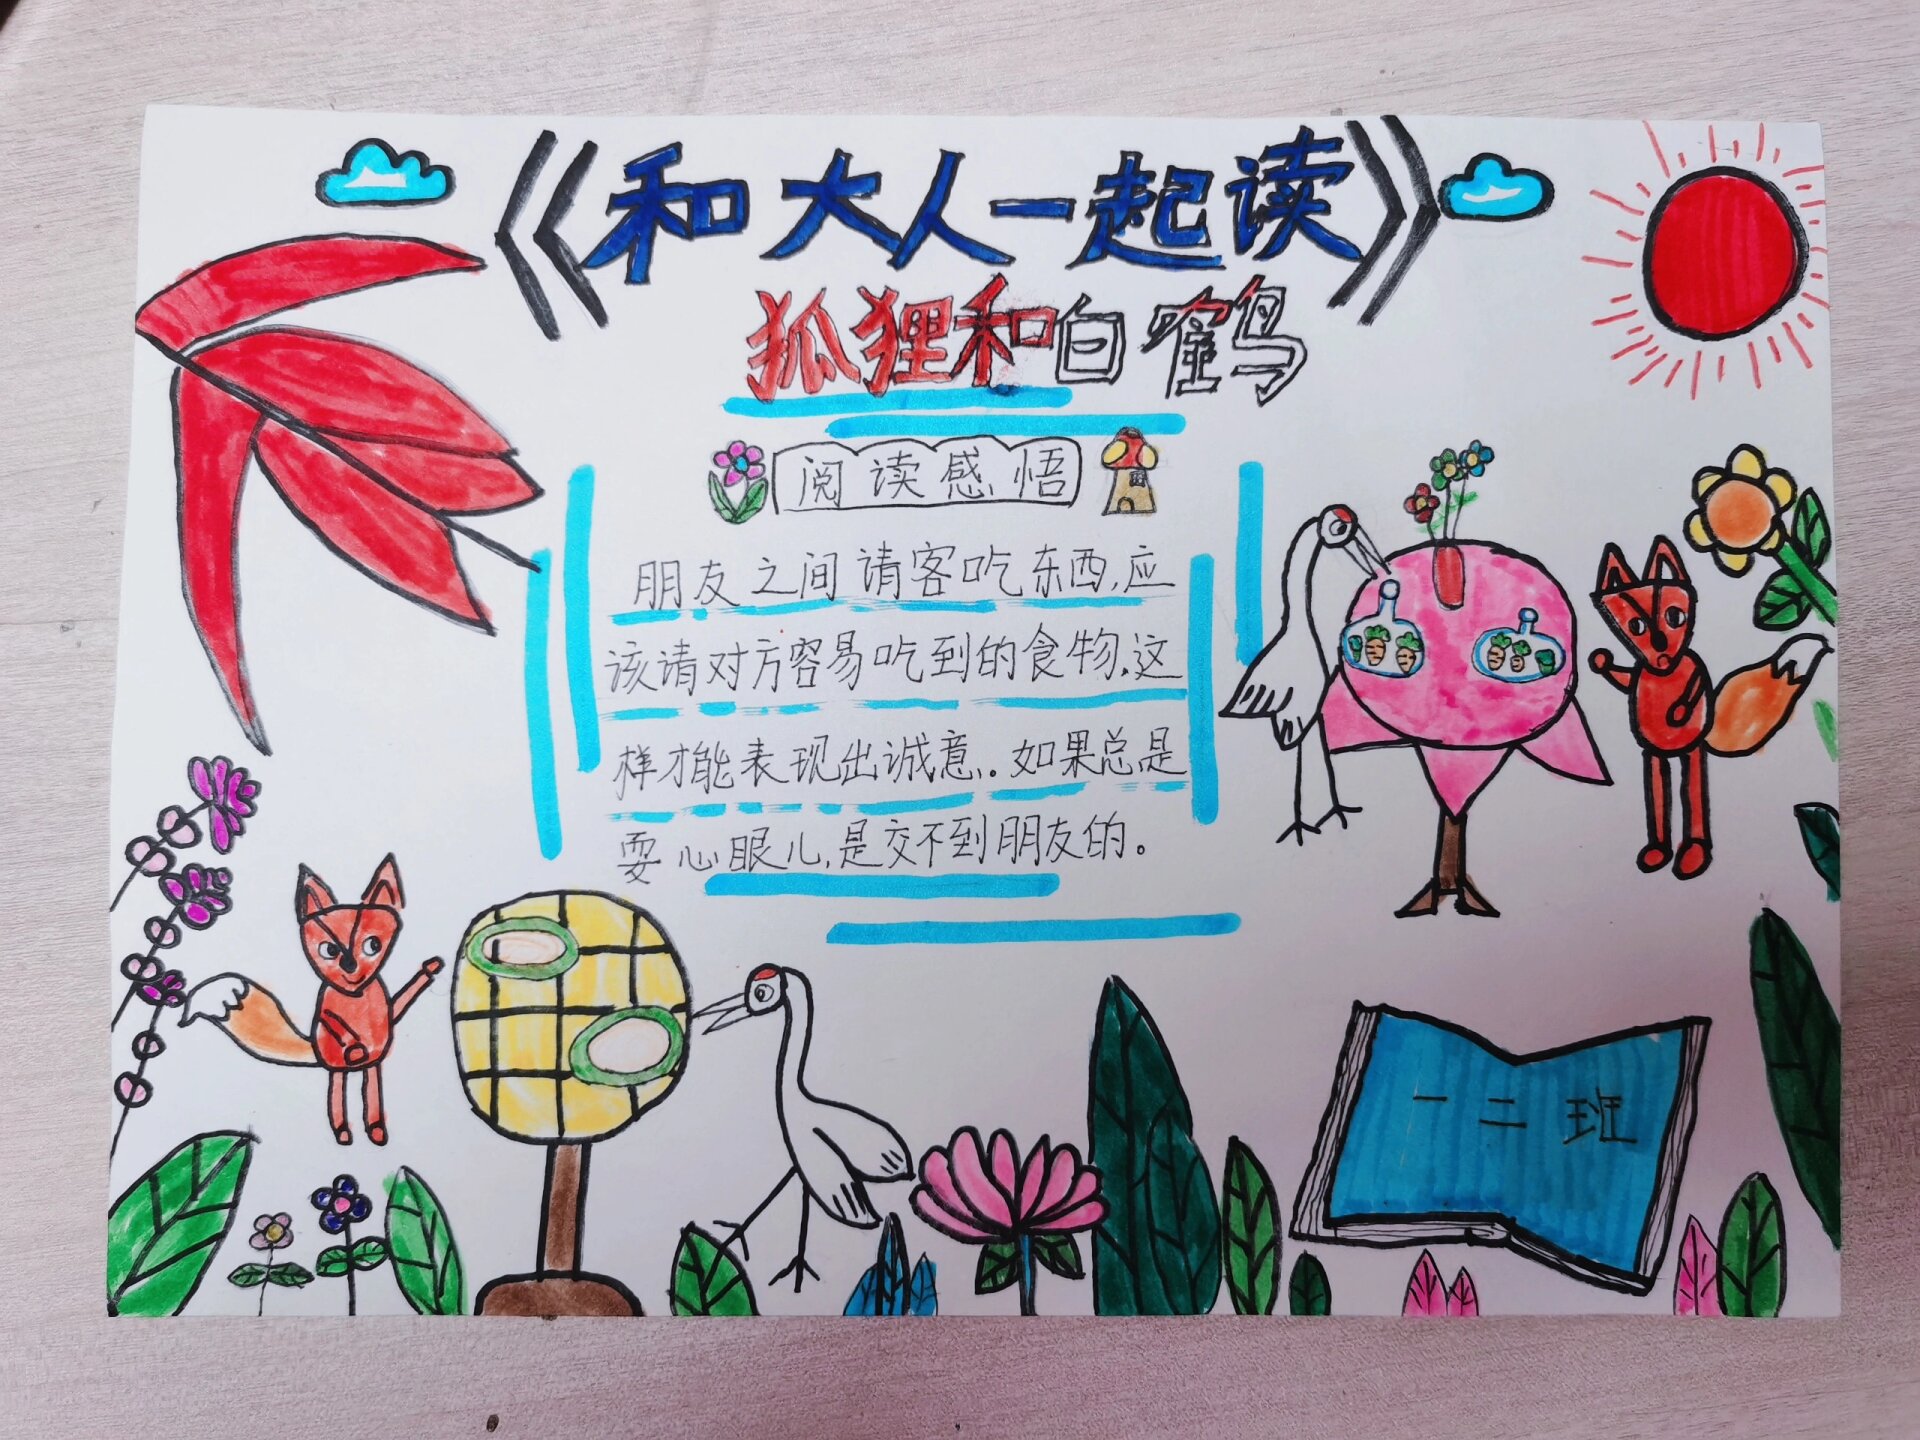 《和大人一起读》
狐狸和白鹤
阅读感悟
朋友之间请客吃东西,应
该请对方容易吃到的食物.这
样才能表现出诚意。如果总是
耍心眼儿,是交不到朋友的。
一二班